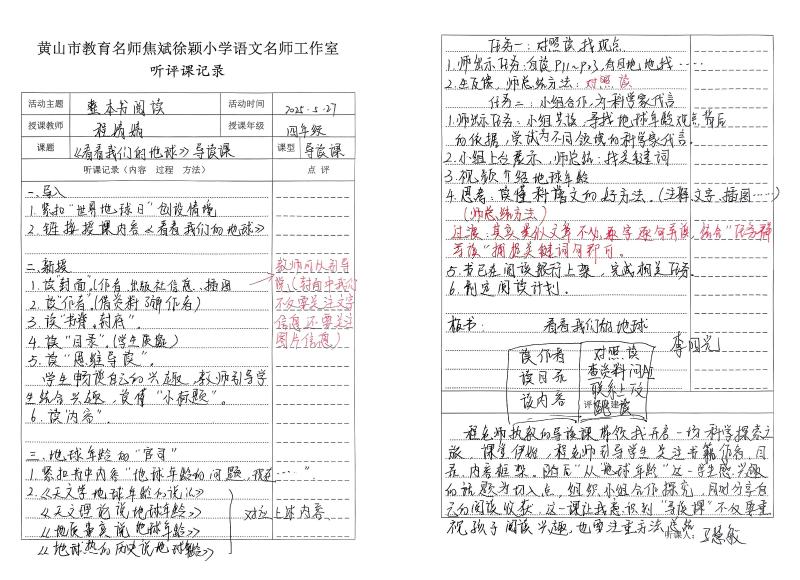 黄山市教育名师焦斌徐颖小学语文名师工作室
听评课记录
活动主题 整本书阅读 活动时间 2025.5.27
授课教师 程娟娟 授课年级 四年级
课题 《看看我们的地球》导读课 课型 导读课
听课记录(内容 过程 方法) 点 评
一、导入
1. 紧扣"世界地球日"创设情境
2. 链接授课内容《看看我们的地球》
二、新授
1. 读"封面"(作者、出版社信息、插图
2. 读"作者"(借资料了解作者)
3. 读"书脊、封底"。
4. 读"目录"。(学生质疑)
5. 读"思维导读"。
学生畅谈自己的兴趣,教师引导学
生结合兴趣,读懂"小标题"。
6. 读"内容"。
教师可以引导
说,(封面中我们
不仅要关注文字
信息,还要关注
图片信息)
三、地球年龄的"官司"
1. 紧扣书中内容"地球年龄的问题,我在……"
2. 《天文学地球年龄的说法》
《天文理论说地球年龄》
《地质事实说地球年龄》
《地球热的历史说地球年龄》
对应上述内容
任务一:对照读,找观点
1. 师出示任务:自读P11~P23,有目地地找……
2. 生反馈,师总结方法:对照读
任务二:小组合作,为科学家代言
1. 师出示任务:小组共读,寻找地球年龄观点背后
的依据,尝试为不同领域的科学家代言。
2. 小组上台展示,师总结:找关键词
3. 视频介绍地球年龄
4. 思考:读懂科普文的好方法。(注释文字、插图……)
(师总结方法)
过渡:其实类似文章不必逐字逐句弄读,结合"任务群
导读"捕捉关键词句即可。
5. 书已在阅读银行上架,完成相关任务。
6. 制定阅读计划。
板书: 看看我们的地球
读作者
读目录
读内容
对照读
查资料 问AI
联系上下文
跳读
李四光
程老师执教的导读课带领我开启一场科学探索之
旅,课堂伊始,程老师引导学生关注书籍作者、目
录、内容框架,随后"从"地球年龄"这一学生感兴趣
的话题为切入点,组织小组合作探究,及时分享自
己的阅读收获,这一课让我意识到"导读课"不仅要重
视孩子阅读兴趣,也要注重方法总结
听课人: